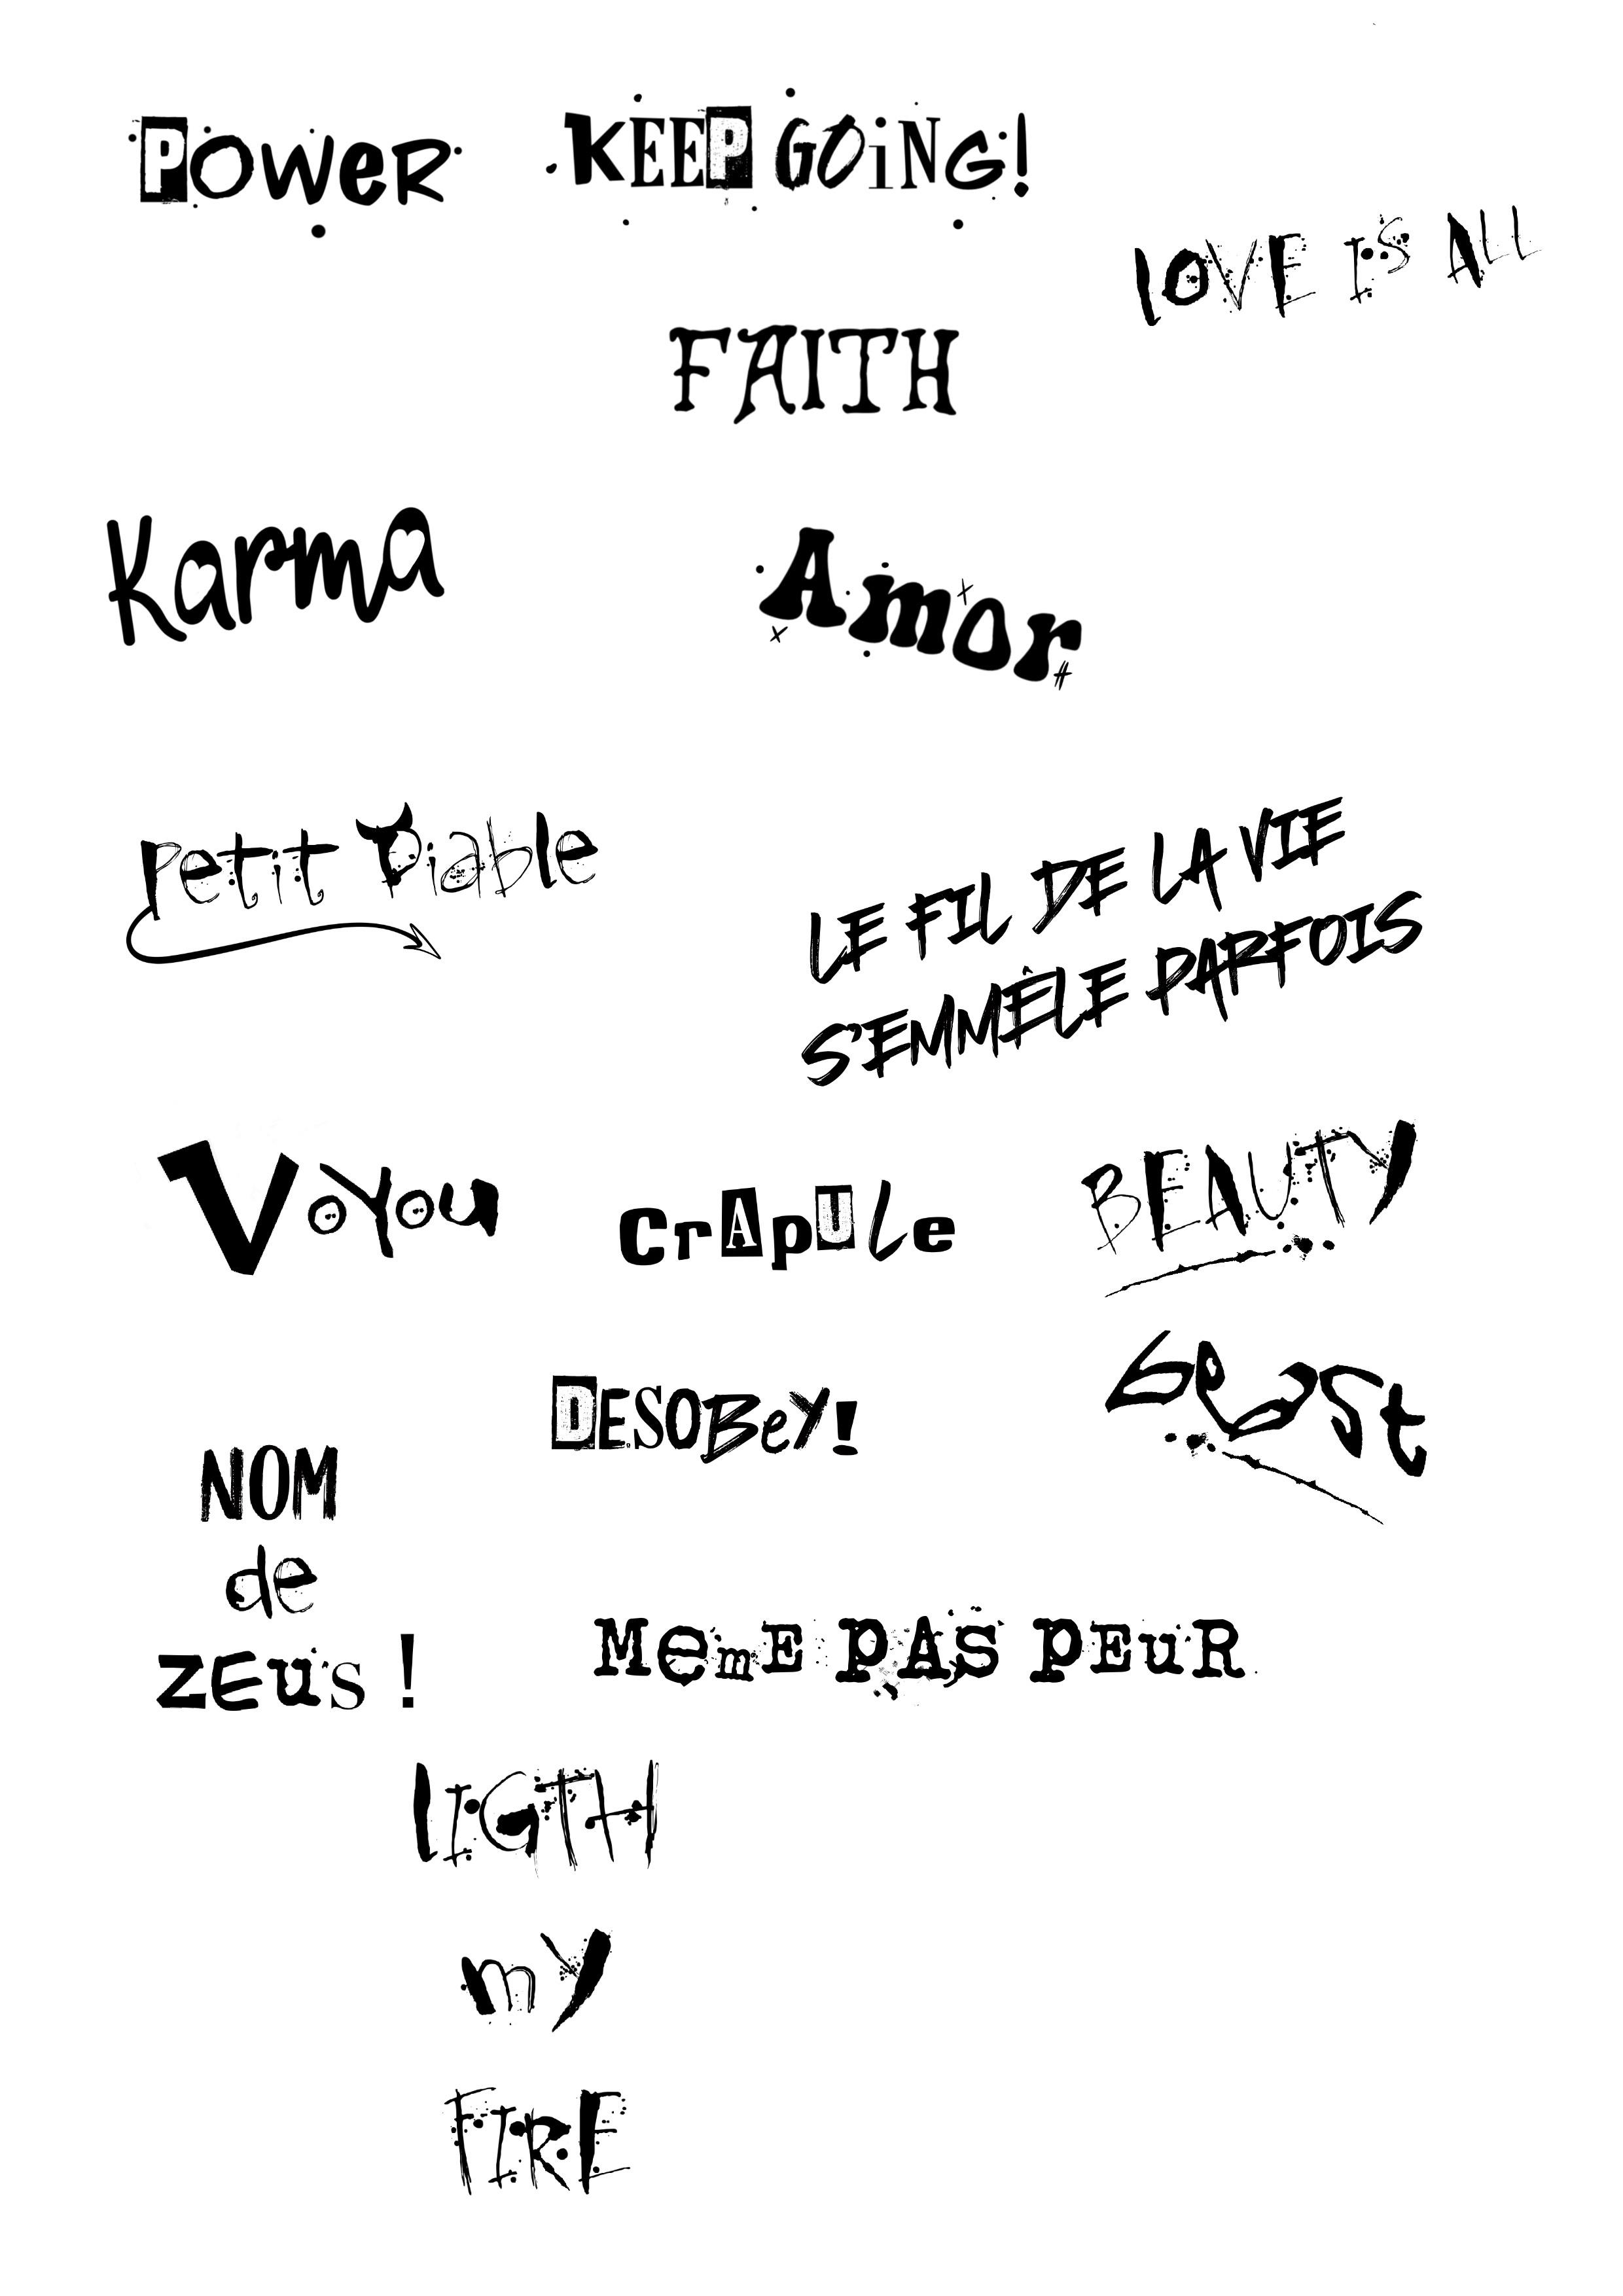 POweR
KEEP GOiNG!
lOVE IS ALL
FAITH
Karma
Amor
Petit Diable
LE FIL DE LA VIE
S'EMMÊLE PARFOIS
VoYou
CrApUle
BEAUTY
beast
DESOBeY!
NOM
de
zEus !
MemE PAS PEuR
lIGTH
mY
FIRE